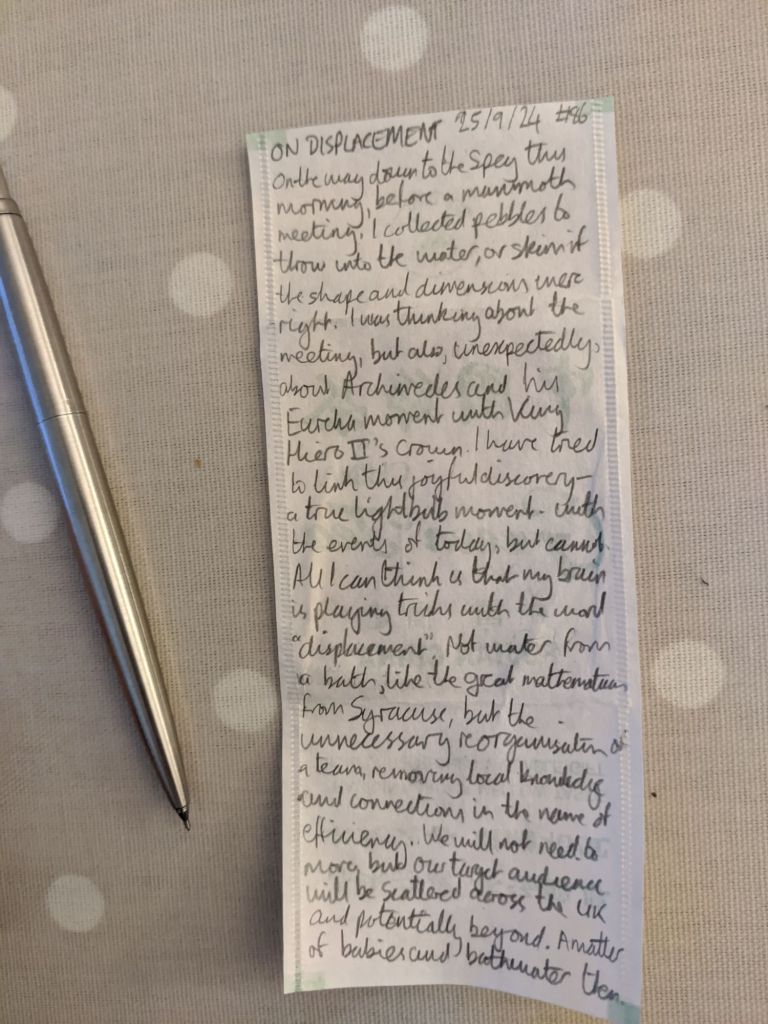 ON DISPLACEMENT 25/9/24 #86
On the way down to the Spey this
morning, before a mammoth
meeting, I collected pebbles to
throw into the water, or skim if
the shape and dimensions were
right. I was thinking about the
meeting, but also, unexpectedly,
about Archimedes and his
Eureka moment with King
Hiero II's Crown. I have tried
to link this joyful discovery -
a true lightbulb moment - with
the events of today, but cannot.
All I can think is that my brain
is playing tricks with the word
"displacement". Not water from
a bath, like the great mathematician
from Syracuse, but the
unnecessary reorganisation of
a team, removing local knowledge
and connections in the name of
efficiency. We will not need to
move, but our target audience
will be scattered across the UK
and potentially beyond. A matter
of babies and bathwater then.